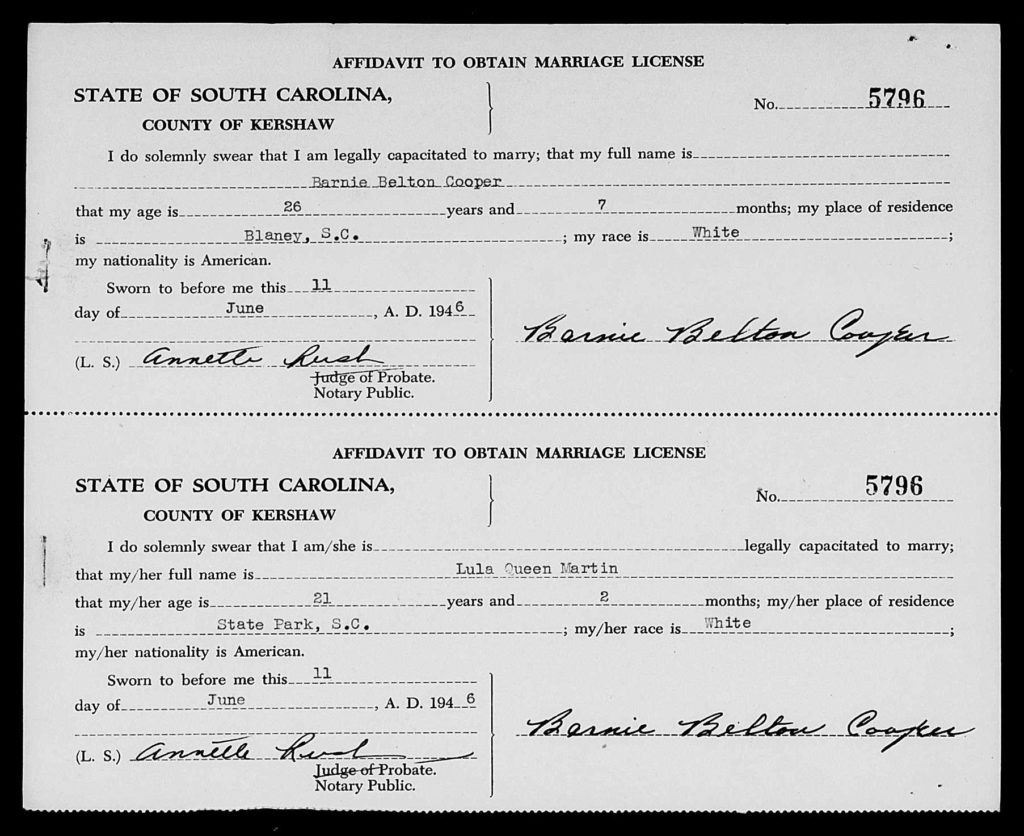 AFFIDAVIT TO OBTAIN MARRIAGE LICENSE
STATE OF SOUTH CAROLINA,
No. 5796
COUNTY OF KERSHAW
I do solemnly swear that I am legally capacitated to marry; that my full name is
Barnie Belton Cooper
that my age is 26 years and 7 months; my place of residence
is Blaney, S.C. ; my race is White ;
my nationality is American.
Sworn to before me this 11
day of June , A. D. 1946
Barnie Belton Cooper
(L. S.) Annette Rush
Judge of Probate.
Notary Public.
AFFIDAVIT TO OBTAIN MARRIAGE LICENSE
STATE OF SOUTH CAROLINA,
No. 5796
COUNTY OF KERSHAW
I do solemnly swear that I am/she is legally capacitated to marry;
that my/her full name is Lula Queen Martin
that my/her age is 21 years and 2 months; my/her place of residence
is State Park, S.C. ; my/her race is White ;
my/her nationality is American.
Sworn to before me this 11
day of June , A. D. 1946
Barnie Belton Cooper
(L. S.) Annette Rush
Judge of Probate.
Notary Public.